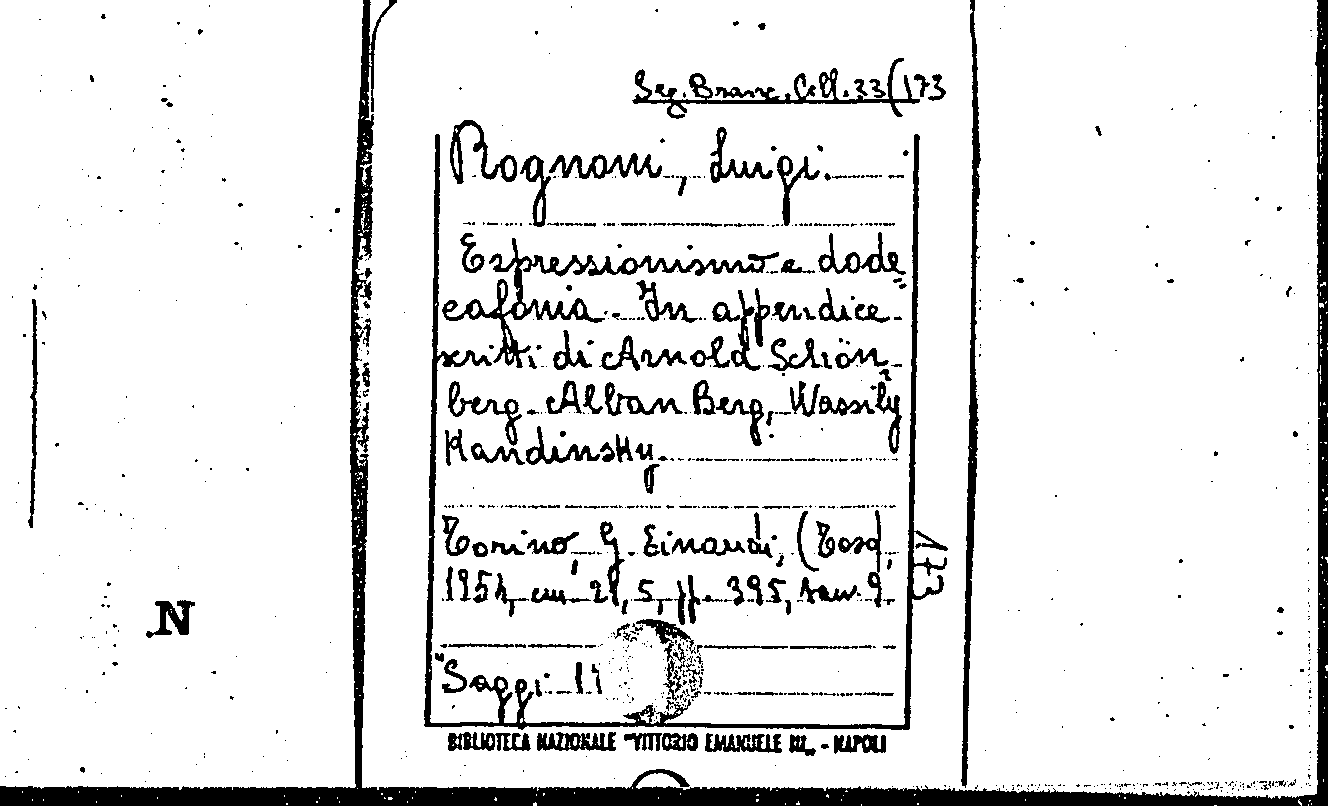 Seg. Branc. Coll. 33(173
Rognoni, Luigi.
Espressionismo e dode
cafonia. In appendice
scritti di Arnold Schön
berg. Alban Berg, Wassily
Kandinsky.
Torino, G. Einaudi,
1954, cm. 21,5, pp. 395, tav. 9.
173
"Saggi
N
BIBLIOTECA NAZIONALE "VITTORIO EMANUELE III„ - NAPOLI